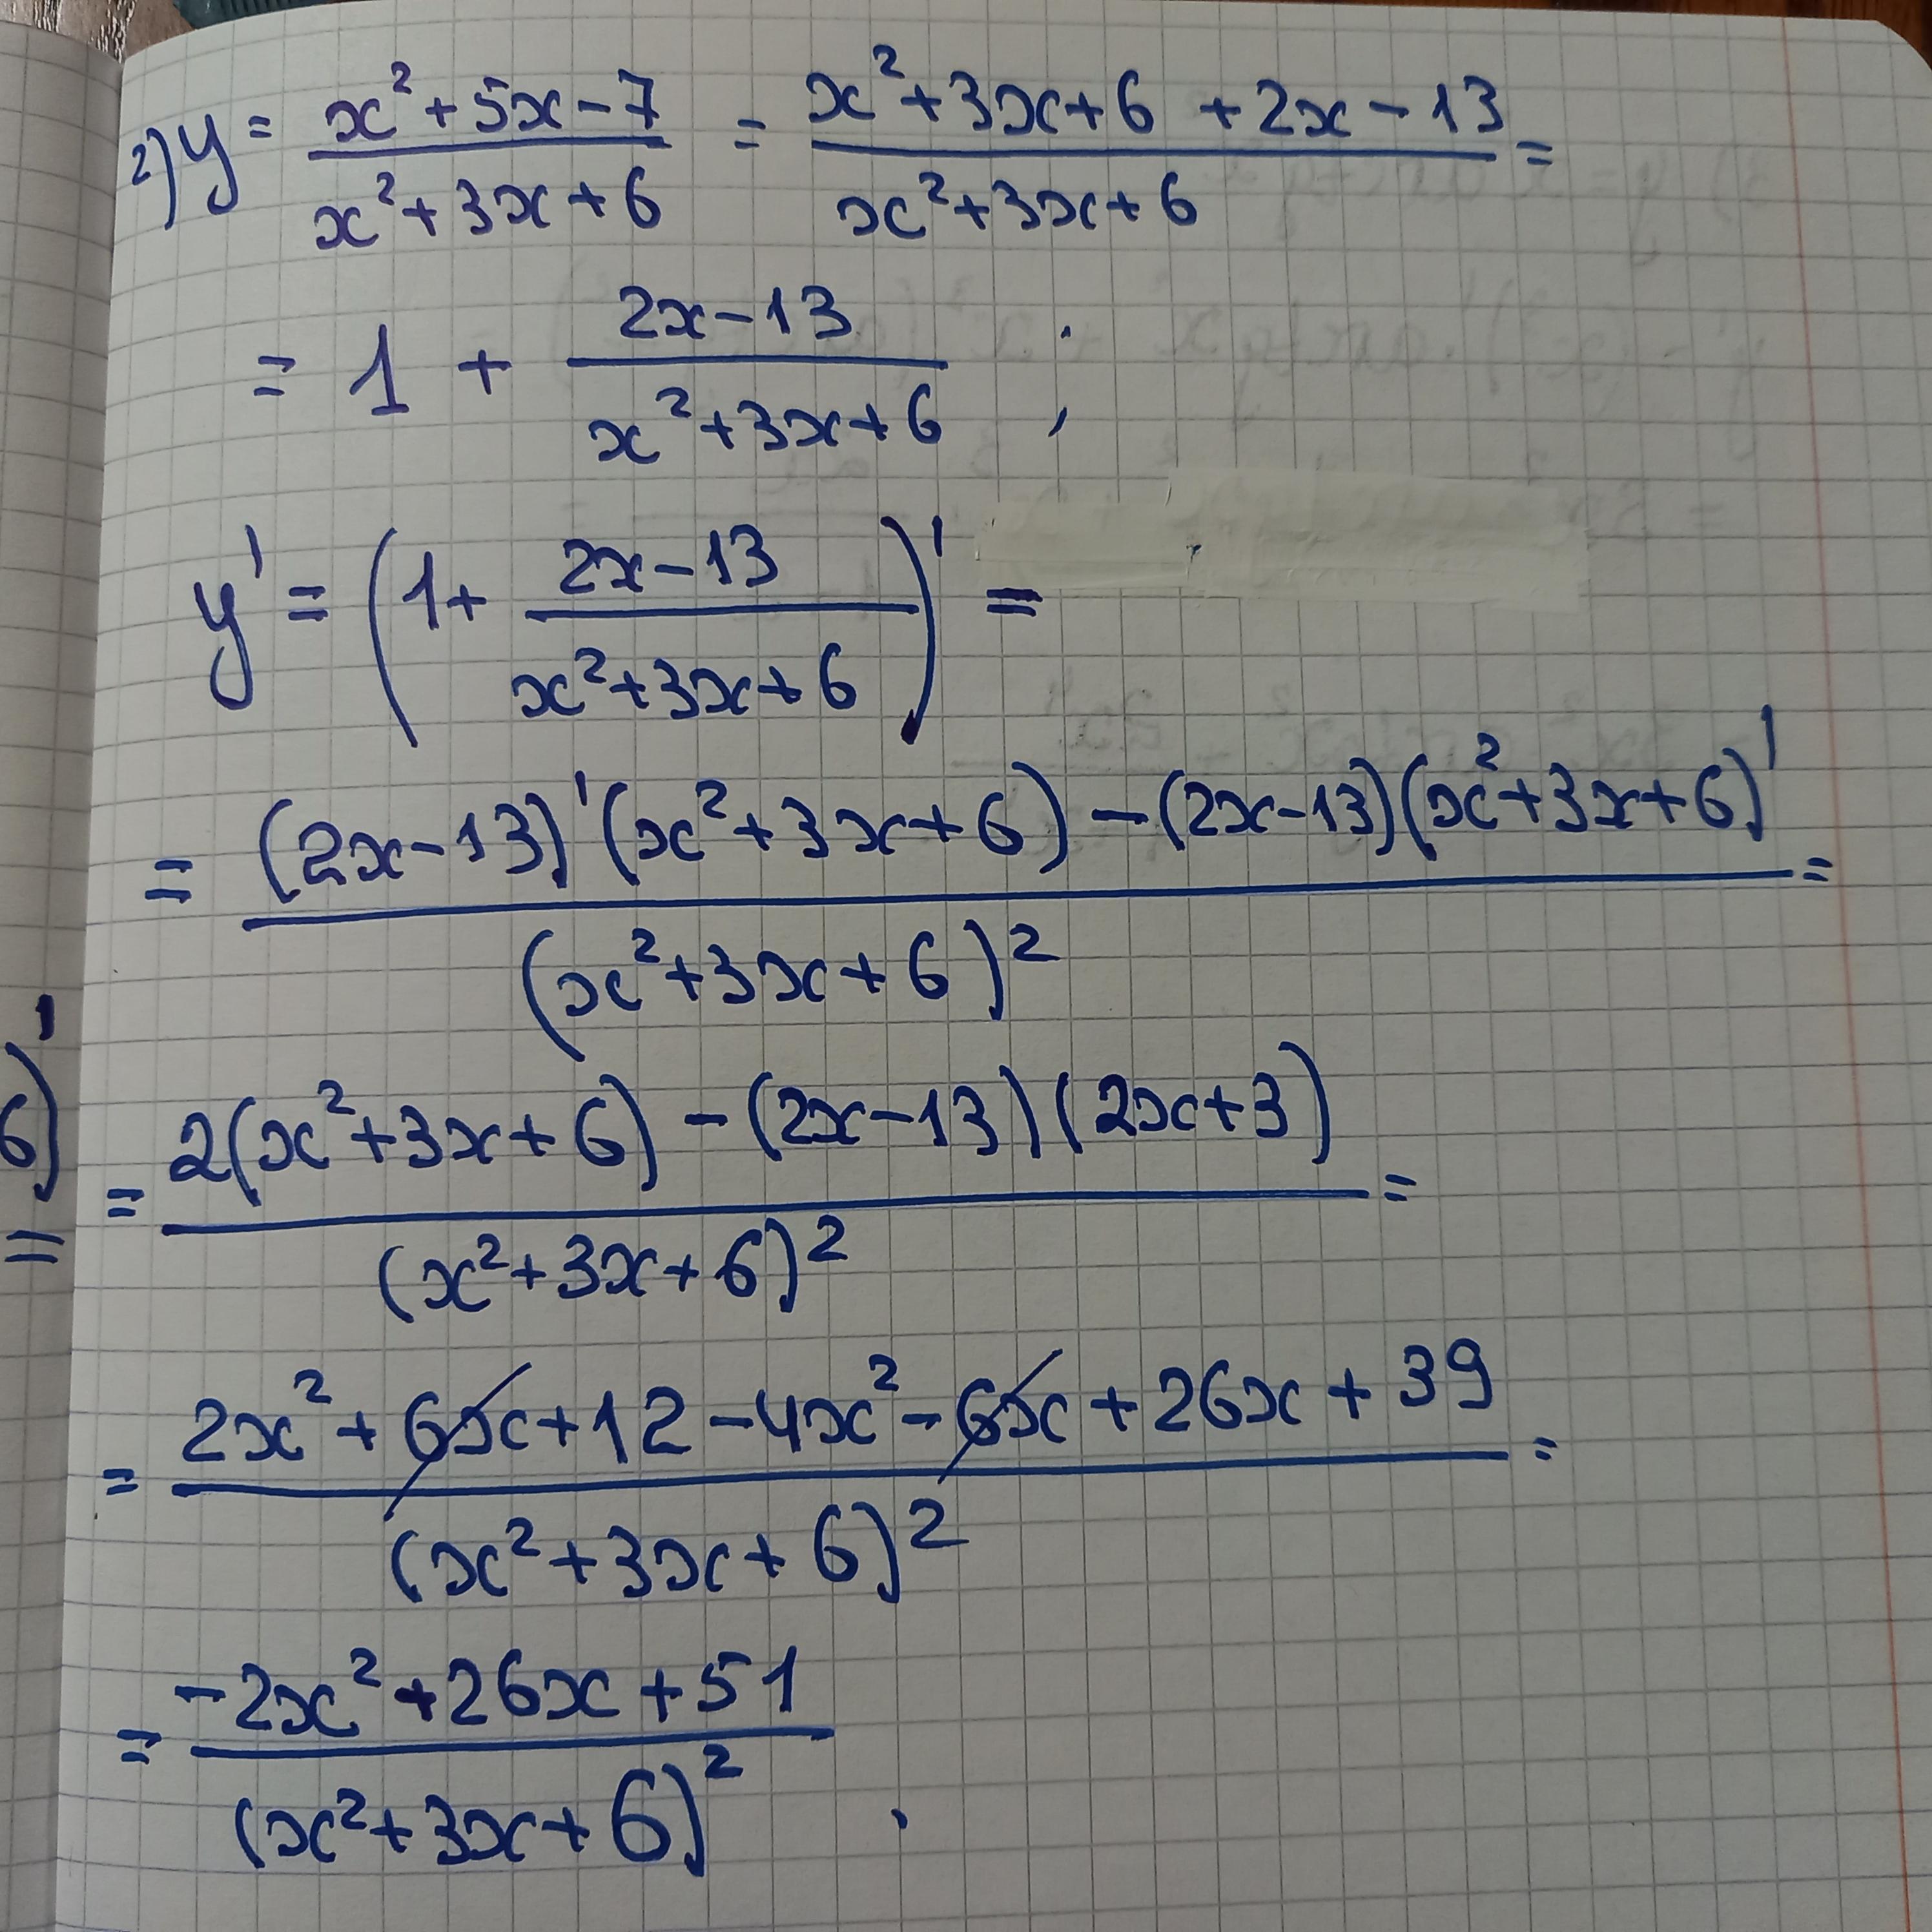 2) y = (x² + 5x - 7)/(x² + 3x + 6) = (x² + 3x + 6 + 2x - 13)/(x² + 3x + 6) =
= 1 + (2x - 13)/(x² + 3x + 6) ;
y' = (1 + (2x - 13)/(x² + 3x + 6))' =
= ((2x - 13)'(x² + 3x + 6) - (2x - 13)(x² + 3x + 6)')/(x² + 3x + 6)² =
6)' =
= (2(x² + 3x + 6) - (2x - 13)(2x + 3))/(x² + 3x + 6)² =
= (2x² + 6x + 12 - 4x² - 6x + 26x + 39)/(x² + 3x + 6)² =
= (-2x² + 26x + 51)/(x² + 3x + 6)² .